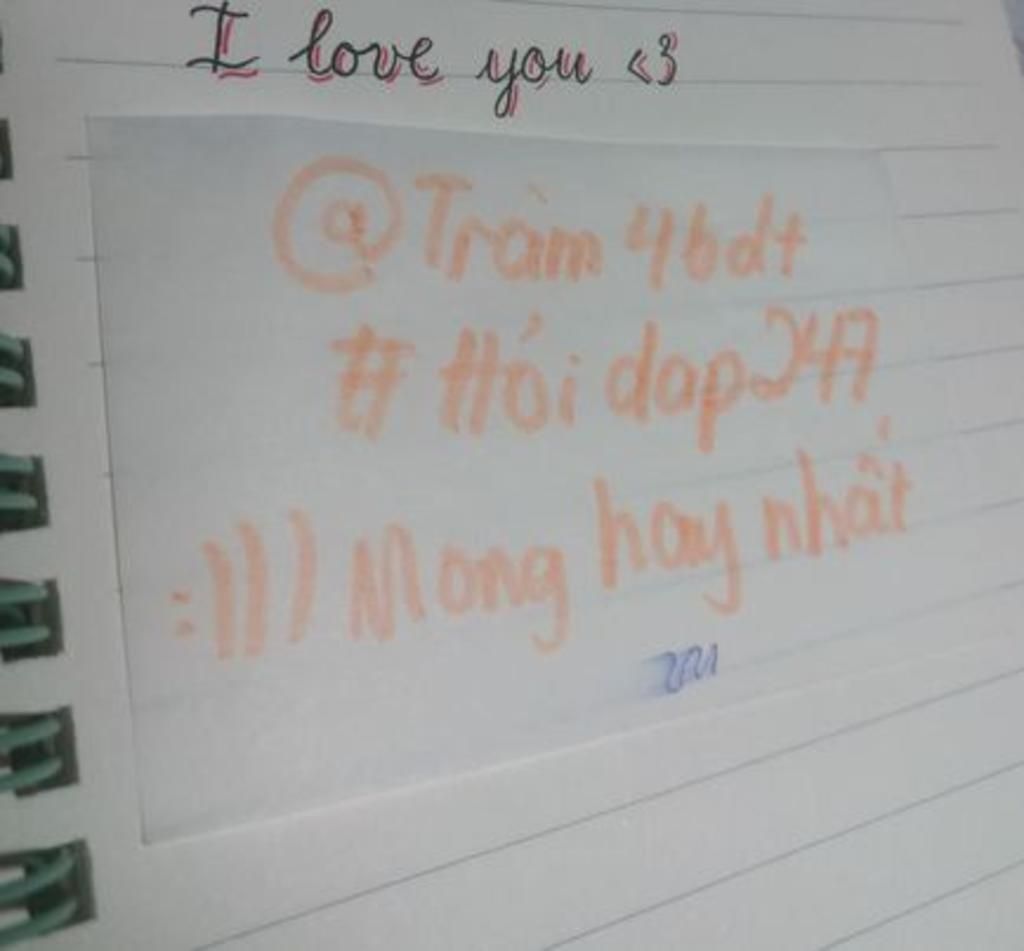 I love you <3
@Tràm 4bdt
# Hỏi dap 247
:))) Mong hay nhất